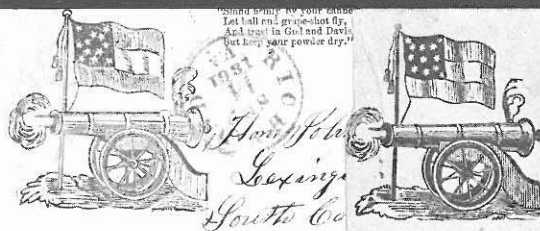 "Stand firmly by your canno
Let ball and grape-shot fly,
And trust in God and Davis
But keep your powder dry."
RICH
VA
1861
Hon
Lexing
South Ca